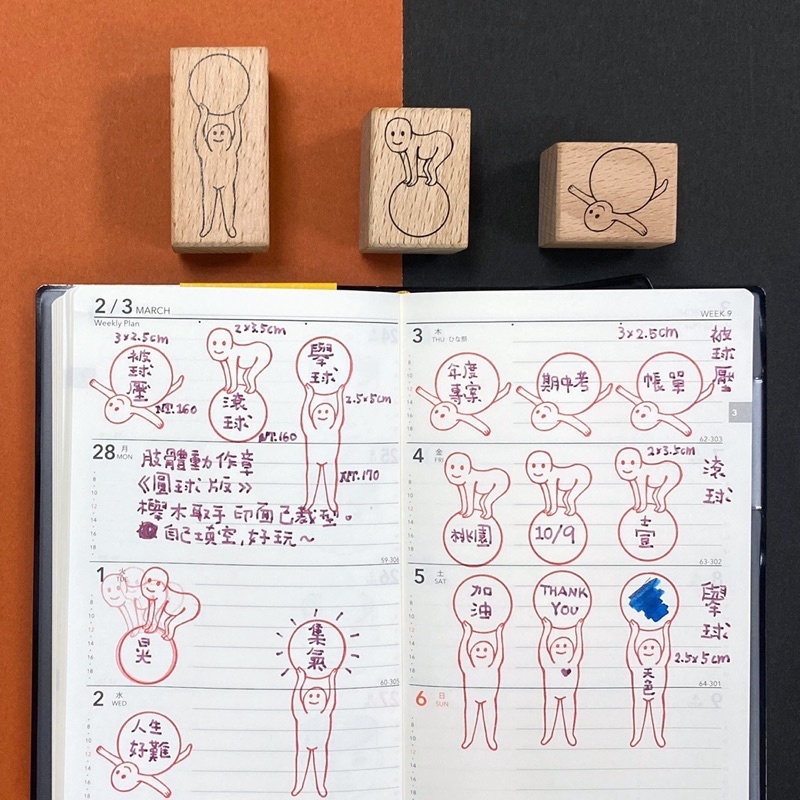 2 / 3 MARCH
Weekly Plan
3×2.5cm
被
球
壓
NT.160
2×3.5cm
滾
球
NT.160
舉
球
2.5×5cm
NT.170
28 月
MON
肢體動作章
《圓球版》
櫸木取手 印面已裁型。
自己填空,好玩~
59-306
1 火
TUE
晃
60-305
集
氣
2 水
WED
人生
好難
WEEK 9
3 木
THU ひな祭
3×2.5cm
被
球
壓
年度
專案
期中考
帳單
3
62-303
4 金
FRI
2×3.5cm
滾
球
桃園
10/9
壹
63-302
5 土
SAT
加
油
THANK
YOU
天
色
舉
球
2.5×5cm
64-301
6 日
SUN